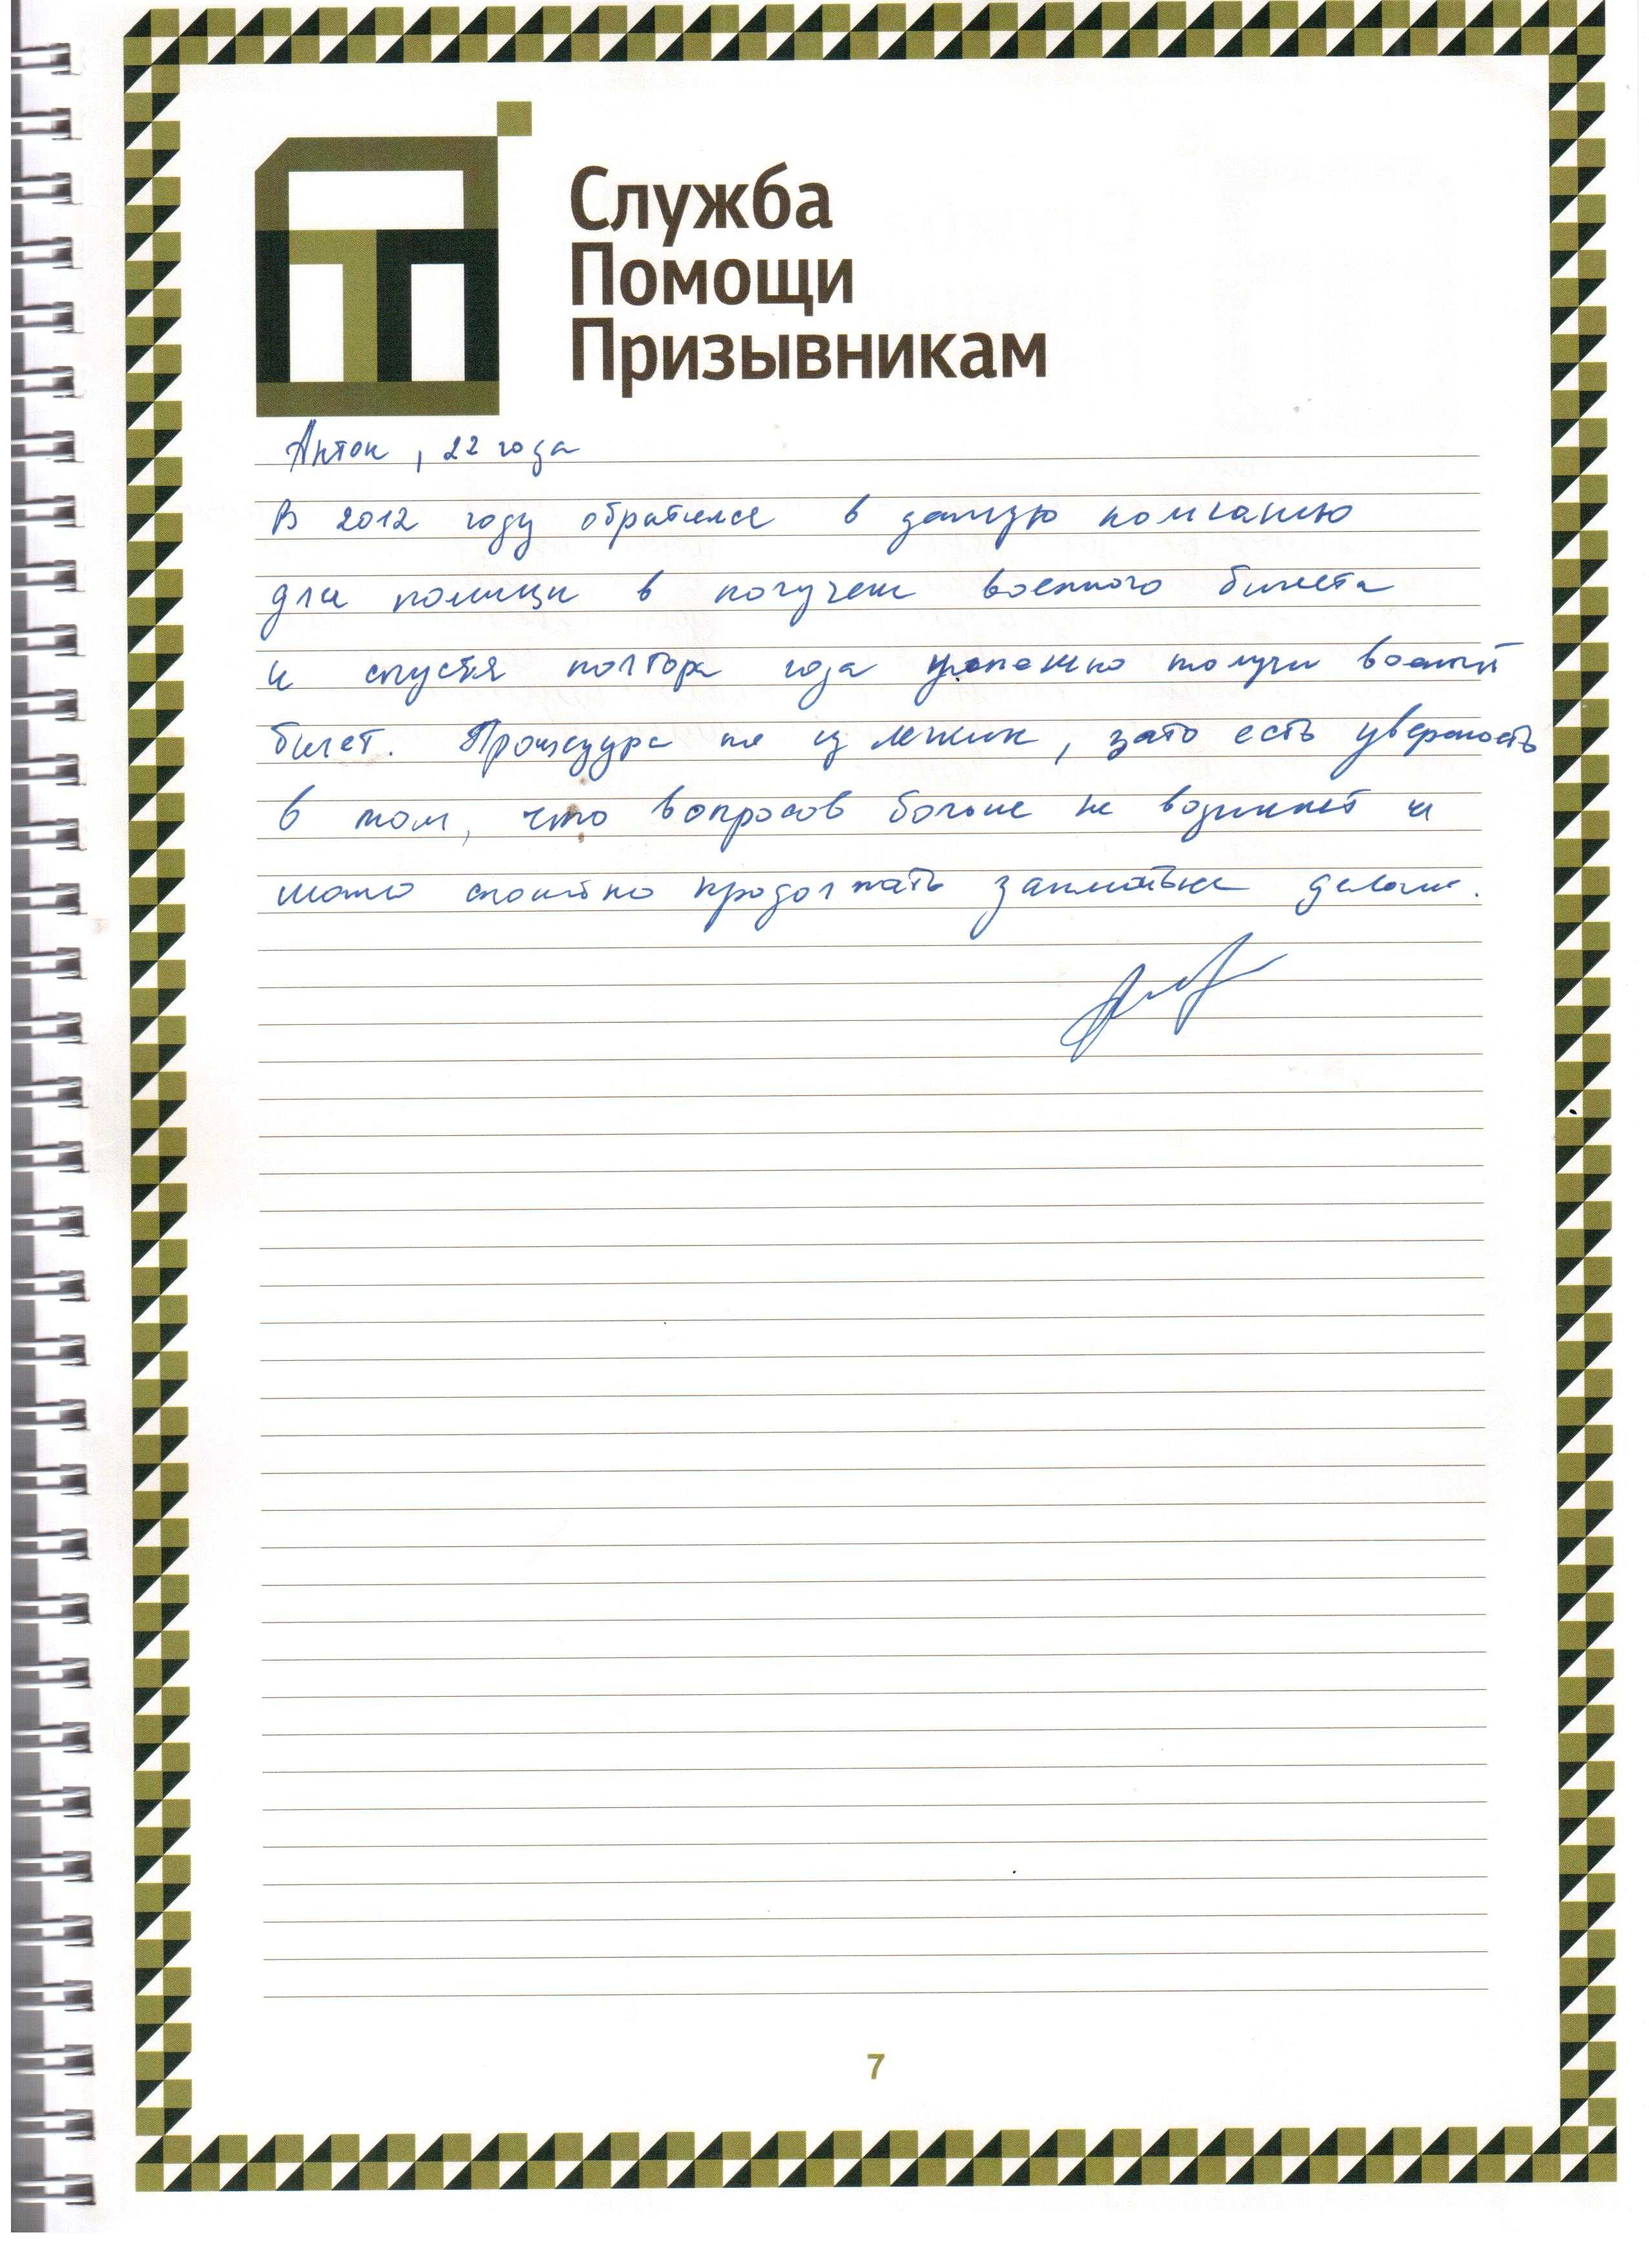 Служба
Помощи
Призывникам
Антон, 22 года
В 2012 году обратился в данную компанию
для помощи в получении военного билета
и спустя полтора года успешно получил военный
билет. Процедура не из легких, зато есть уверенность
в том, что вопросов больше не возникнет и
можно спокойно продолжать заниматься делами.
7